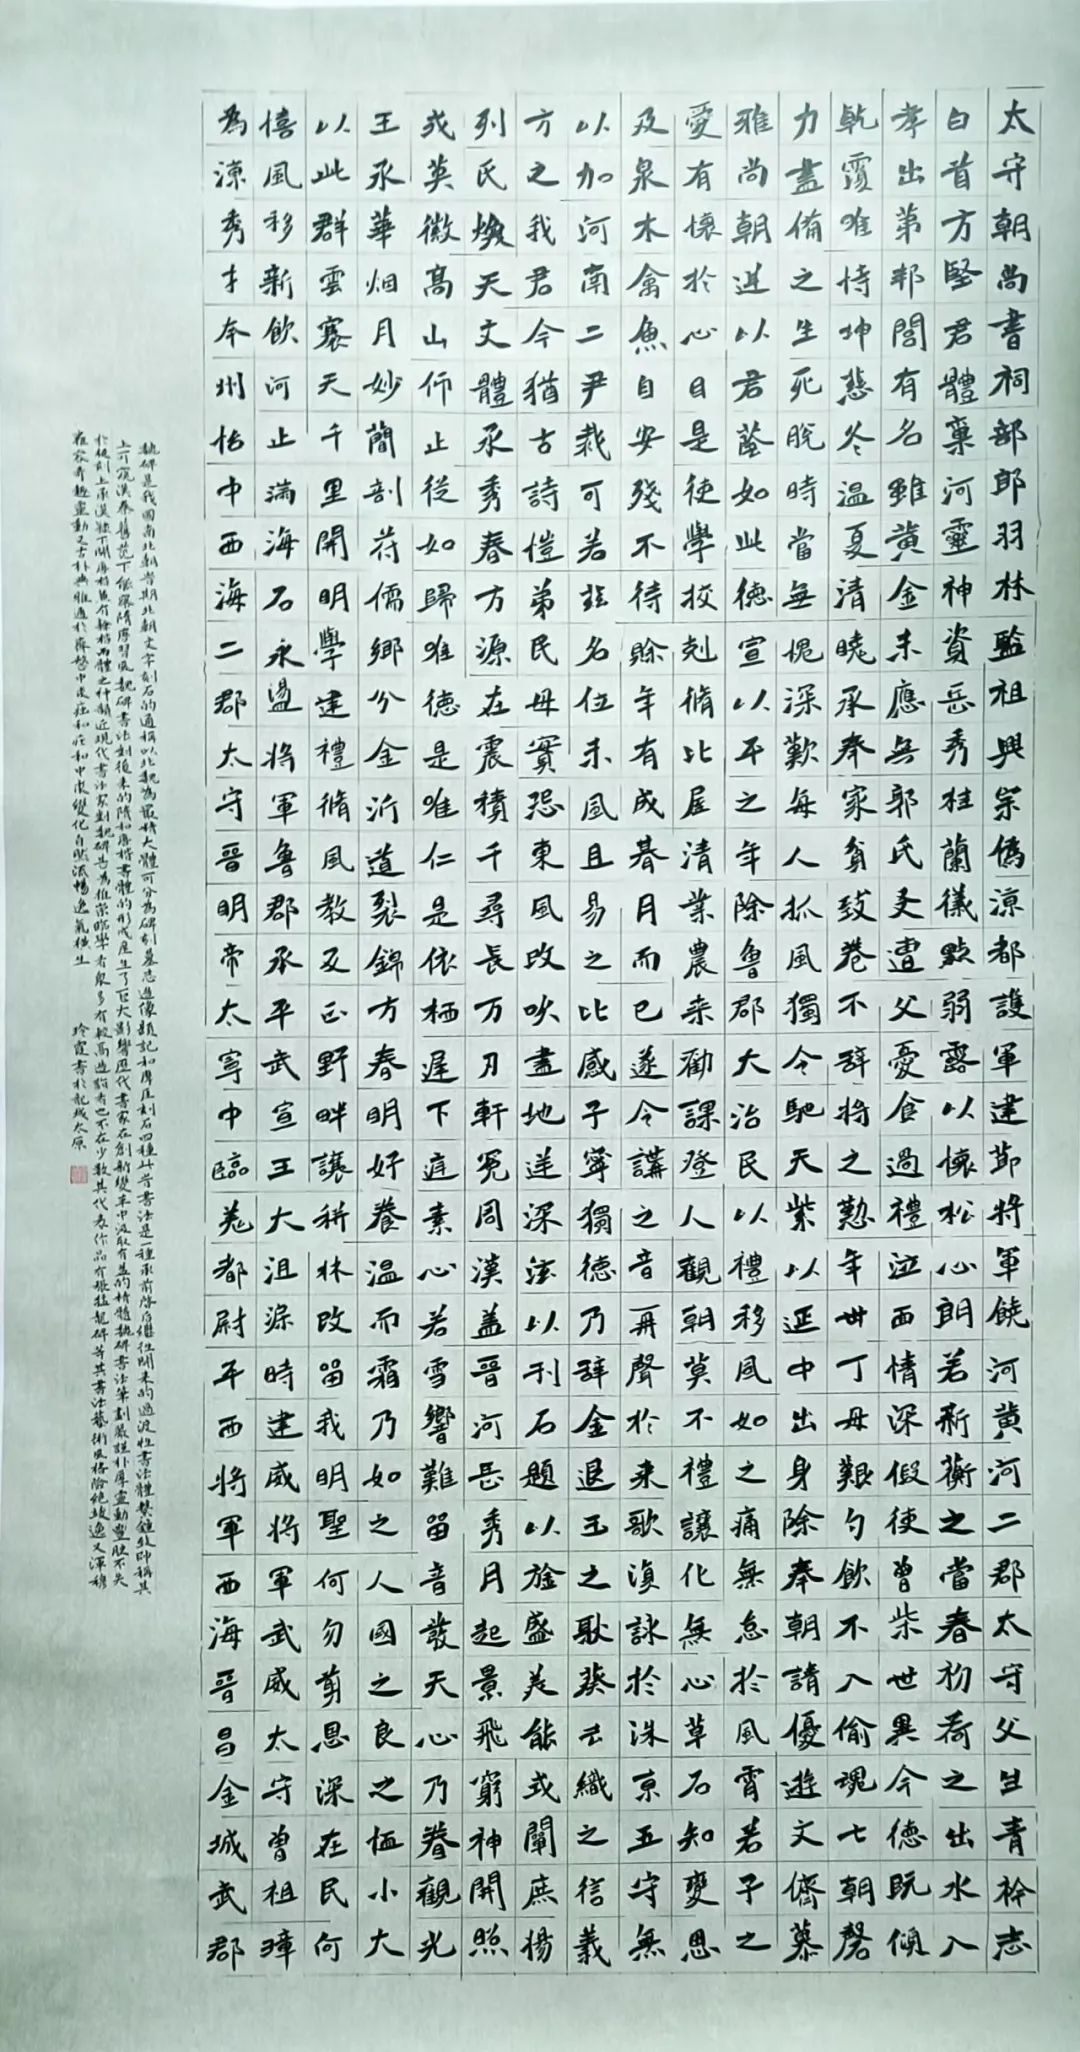 太守朝尚書祠部郎羽林監祖興宗偽涼都護軍建節將軍饒河黃河二郡太守父生青衿志
白首方堅君體稟河靈神資岳秀桂蘭儀點弱露以懷松心朗若新蘅之當春初荷之出水入
孝出弟邦閭有名雖黃金未應無郭氏友遭父憂食過禮泣面情深假使曾柴世異今德既傾
乾覆唯恃坤慈冬溫夏清曉承奉家貧致養不辞將之懃年丗丁母艱勺飲不入偷魂七朝磬
力盡脩之生死脫時當無愧深歎每人孤風獨令馳天紫以延中出身除奉朝請優遊文儕慕
雅尚朝進以君蔭如此德宣以平之年除魯郡大治民以禮移風如之痛無怠於風宵若子之
愛有懷於心目是使學校剋脩比屋清業農来勸課登人觀朝莫不禮讓化無心草石知變思
及泉木禽魚自安殘不待賒年有成朞月而已遂令講之音再聲於来歌滇詠於洙京五守無
以加河南二尹裁可若茲名位未風且易之比感子寧獨德乃辞金退玉之耿葵去織之信義
方之我君今猶古詩愷弟民母實恐東風改吹盡地逆深法以刊石題以旌盛美能或闡庶揚
列氏煥天文體承秀春方源在震積千尋長万刃軒冕周漢蓋晉河岳秀月起景飛窮神開照
或英徽高山仰止從如歸唯德是唯仁是依栖遲下庭素心若雪響難留音發天心乃眷觀光
王永華烟月妙簡剖苻儒鄉分金沂道裂錦方春明好養溫而霜乃如之人國之良之恤小大
以此群雲褰天千里開明學建禮脩風教反正野畔讓耕林改留我明聖何勿剪恩深在民何
憘風移新飲河止滿海石永盪將軍魯郡承平武宣王大沮渠時建威將軍武威太守曾祖璋
為涼秀才本州怙中西海二郡太守晉明帝太寧中臨羌都尉平西將軍西海晉昌金城武郡
魏碑是我國南北朝時期北朝文字刻石的通稱以北魏為最精大體可分為碑刻墓志造像題記和摩崖刻石四種此時書法是一種承前啓后繼往開来的過渡性書法體系鍾致帥稱其
上可窺漢秦舊范下能察隋唐習風魏碑書法對後来的隋和唐楷書體的形成産生了巨大影響歷代書家在創新變革中汲取有益的精髓魏碑書法筆劃嚴謹朴厚靈動豐腴不失
於挺劲上承漢隸下開唐楷兼有隸楷兩體之神韻近現代書法家對魏碑甚為推崇臨學者衆多有較高造詣者也不在少數其代表作品有張猛龍碑等其書法藝術風格險絕峻逸又渾穆
雍容奇趣靈動又古朴典雅通於齊整中變化自然流暢逸氣橫生 玲霞書於龍城太原